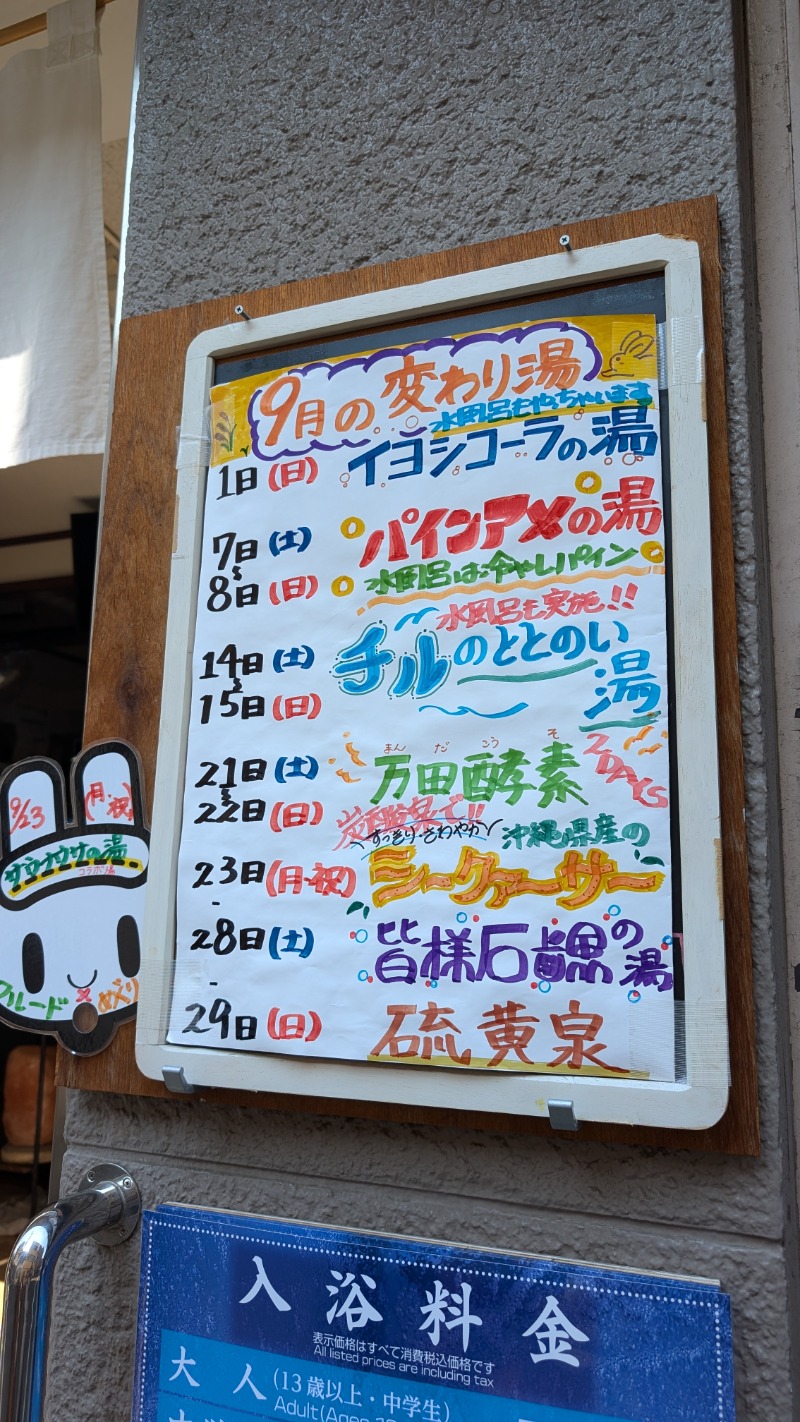 9月の変わり湯
水風呂もやっちゃいます
1日(日) イヨシコーラの湯
7日(土) パインアメの湯
〜
8日(日) 水風呂は冷やしパイン
水風呂も実施!!
14日(土) チルのととのい
〜
15日(日) 湯
まんだこうそ
21日(土) 万田酵素 2DAYS
〜
22日(日) 炭酸泉で!!
すっきり・さわやか 沖縄県産の
23日(月・祝) シークァーサー
28日(土) 皆様石鹸の湯
29日(日) 硫黄泉
9/23 (月・祝)
サウナウサの湯
コラボ湯
× めぐり
入浴料金
表示価格はすべて消費税込価格です
All listed prices are including tax
大人(13歳以上・中学生)
Adult